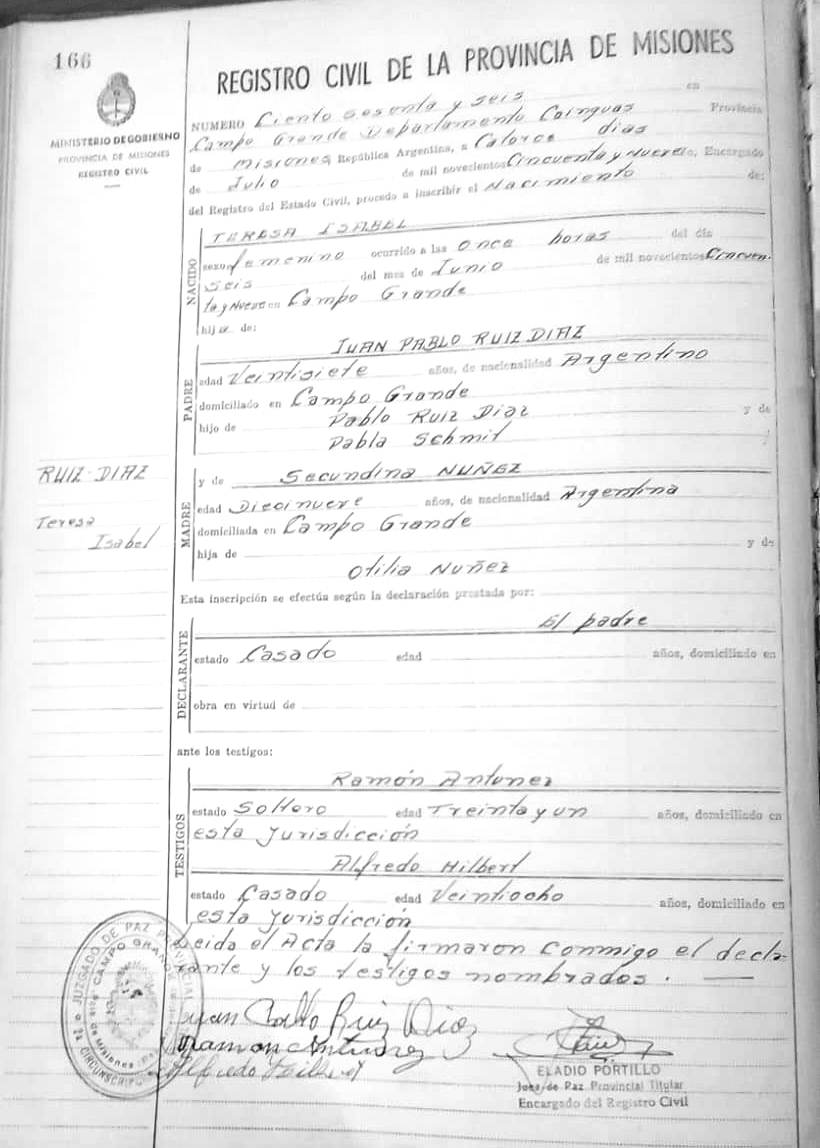 166
MINISTERIO DE GOBIERNO
PROVINCIA DE MISIONES
REGISTRO CIVIL
REGISTRO CIVIL DE LA PROVINCIA DE MISIONES
NUMERO Ciento sesenta y seis en
Campo Grande Departamento Cainguas Provincia
de Misiones República Argentina, a Catorce dias
de Julio de mil novecientos Cincuenta y Nueve, Encargado
del Registro del Estado Civil, procedo a inscribir el Nacimiento de:
NACIDO
TERESA ISABEL
sexo femenino ocurrido a las once horas del día
seis del mes de Junio de mil novecientos Cincuen-
ta y Nueve en Campo Grande
hija de:
PADRE
JUAN PABLO RUIZ DIAZ
edad Veintisiete años, de nacionalidad Argentino
domiciliado en Campo Grande
hijo de Pablo Ruiz Diaz y de
Pabla Schmit
RUIZ DIAZ
Teresa
Isabel
MADRE
y de Secundina NUÑEZ
edad Diecinueve años, de nacionalidad Argentina
domiciliada en Campo Grande
hija de y de
Otilia Nuñez
Esta inscripción se efectúa según la declaración prestada por:
DECLARANTE
El padre
estado Casado edad años, domiciliado en
obra en virtud de
ante los testigos:
TESTIGOS
Ramón Antunez
estado Soltero edad Treinta y un años, domiciliado en
esta Jurisdicción
Alfredo Hilbert
estado Casado edad Veintiocho años, domiciliado en
esta Jurisdicción
Leida el Acta la firmaron conmigo el decla-
rante y los testigos nombrados.
JUZGADO DE PAZ PROVINCIAL
CAMPO GRANDE
Misiones
CIRCUNSCRIPCION
Juan Pablo Ruiz Diaz
Ramon Antunez
Alfredo Hilbert
ELADIO PORTILLO
Juez de Paz Provincial Titular
Encargado del Registro Civil